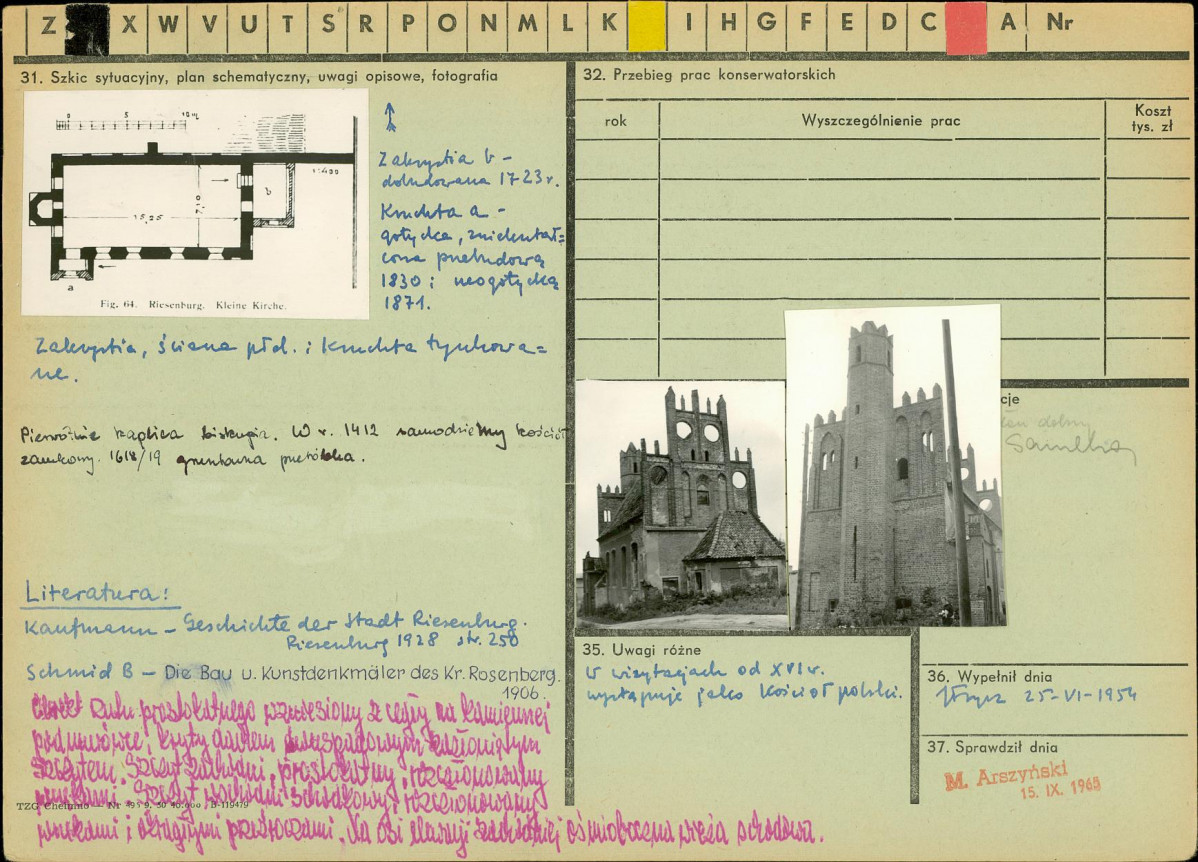 Z X W V U T S R P O N M L K I H G F E D C A Nr
31. Szkic sytuacyjny, plan schematyczny, uwagi opisowe, fotografia
0 5 10 m
1:400
b
15,25
7,10
a
Fig. 64. Riesenburg. Kleine Kirche.
Zakrystia b –
dobudowana 1723 r.
Kruchta a –
gotycka, zniekształ=
cona przebudową
1830 i neogotycką
1871.
Zakrystia, ściana płd. i kruchta tynkowa=
ne.
Pierwotnie kaplica biskupia. W r. 1412 samodzielny kościół
zamkowy. 1618/19 gruntowna przeróbka.
Literatura:
Kaufmann – Geschichte der Stadt Riesenburg.
Riesenburg 1928 str. 250
Schmid B – Die Bau u. Kunstdenkmäler des Kr. Rosenberg.
1906.
Obiekt rzutu prostokątnego wzniesiony z cegły na kamiennej
podmurówce, kryty dachem dwuspadowym zasłoniętym
szczytem. Szczyt zachodni, prostokątny, rozczłonkowany
wnękami. Szczyt wschodni schodkowy, rozczłonkowany
TZG Chełmno — Nr
B-119479
wnękami i okrągłymi przeźroczami. Na osi elewacji zachodniej ośmioboczna wieża schodowa.
32. Przebieg prac konserwatorskich
rok Wyszczególnienie prac Koszt
tys. zł
cje
35. Uwagi różne
W wizytacjach od XVI w.
występuje jako kościół polski.
36. Wypełnił dnia
25-VI-1954
37. Sprawdził dnia
M. Arszyński
15. IX. 1965